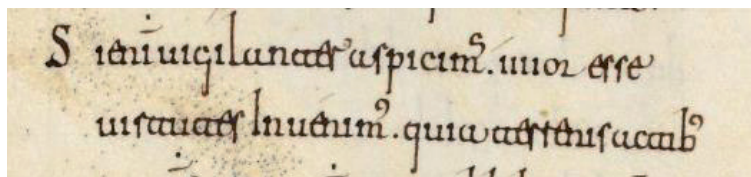 Si eni̅ uigilanter aspicimꝰ. iiiior esse
uirtutes Inuenimꝰ. quia terrenis actibꝰ